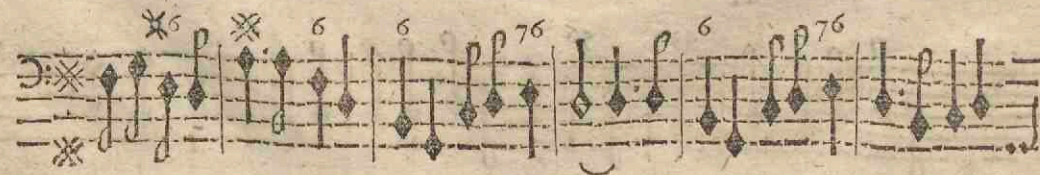 6 6 6 76 6 76